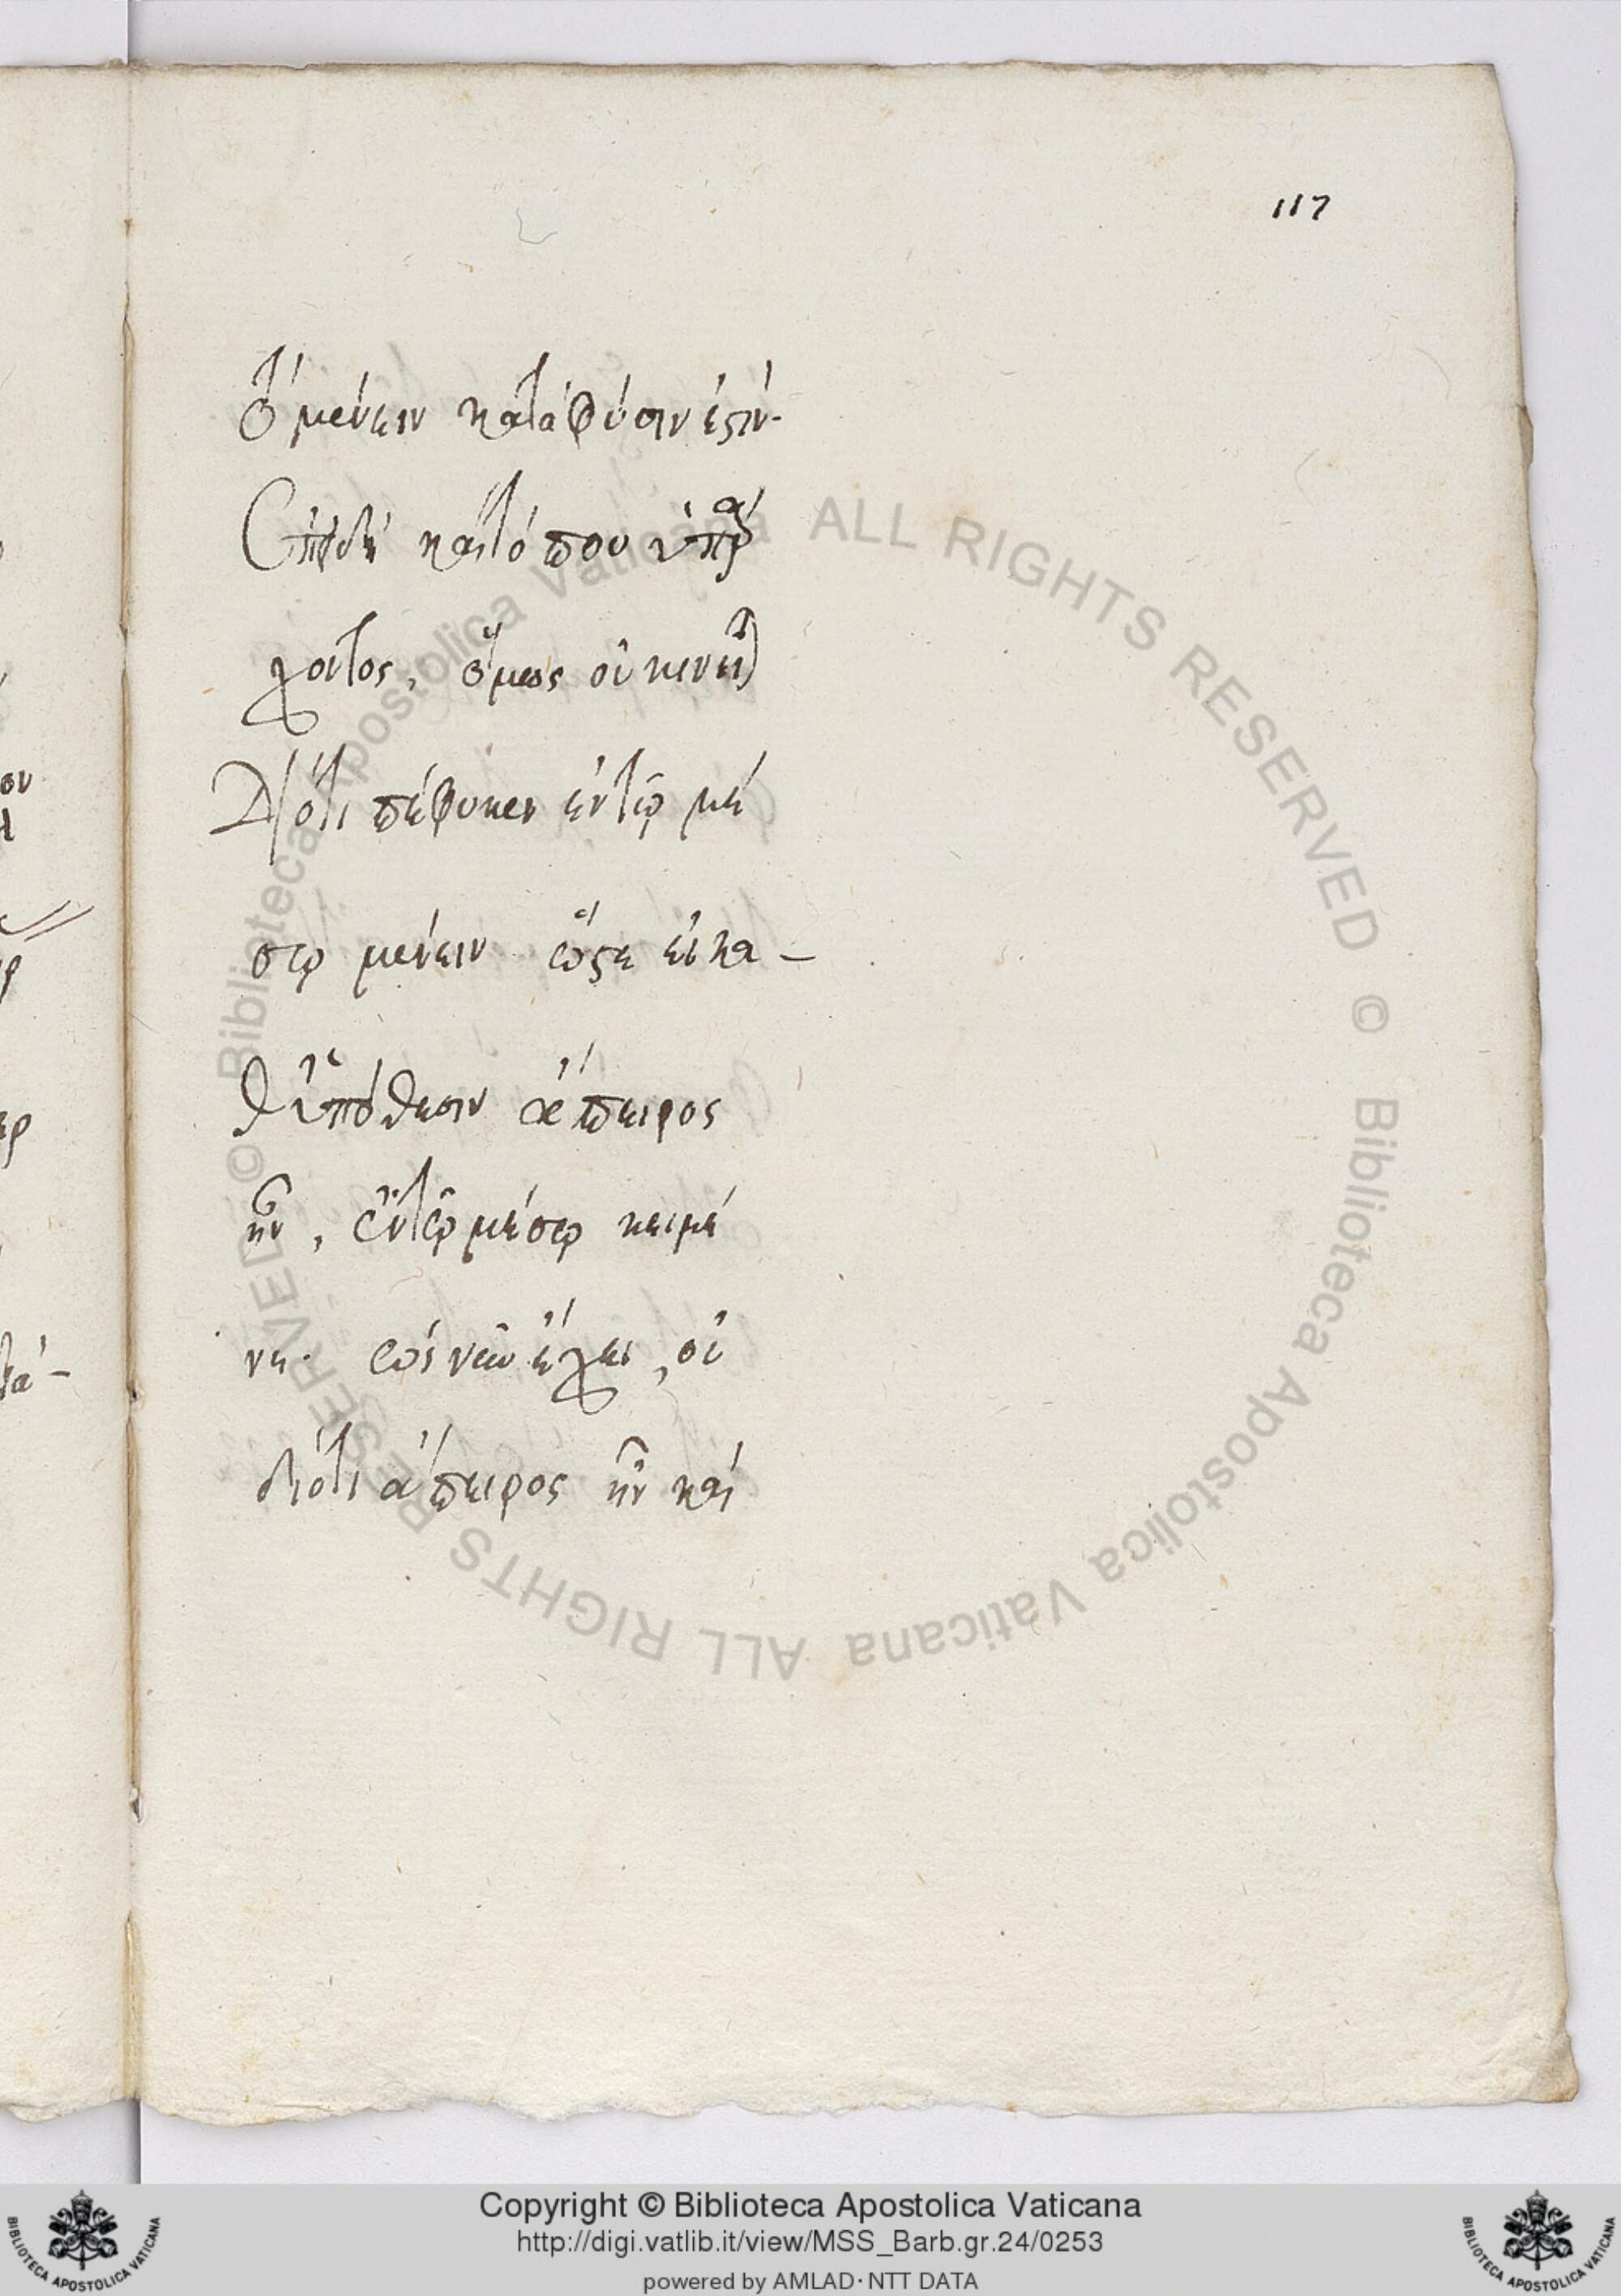 117
ὃ μένειν κατὰ φύσιν ἐστίν.
Ἐπειδὴ καὶ τόπου ὑπάρ
χοντος, ὅμως οὐ κινεῖται
Διότι πέφυκεν ἐν τῷ μέ
σῳ μένειν ὥστε εἰ κα –
θ ὑπόθεσιν ἄπειρος
ἦν, ἐν τῷ μέσῳ κειμέ
νη. ὡς νῦν ἔχει, οὐ
διότι ἄπειρος ἦν καὶ
© Biblioteca Apostolica Vaticana ALL RIGHTS RESERVED © Biblioteca Apostolica Vaticana ALL RIGHTS RESERVED
Copyright © Biblioteca Apostolica Vaticana
http://digi.vatlib.it/view/MSS_Barb.gr.24/0253
powered by AMLAD · NTT DATA
BIBLIOTECA APOSTOLICA VATICANA
BIBLIOTECA APOSTOLICA VATICANA